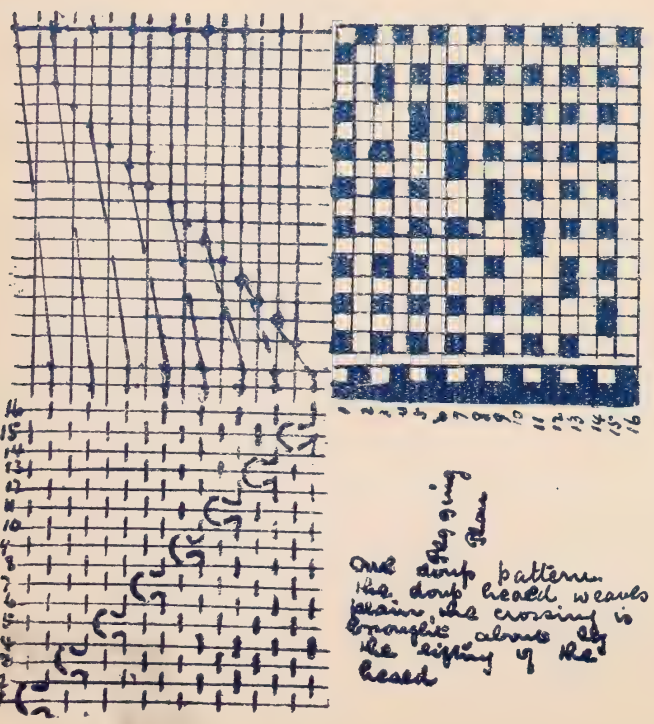 16
15
14
13
12
11
10
9
8
7
6
5
4
3
2
1 2 3 4 5 6 7 8 9 10 11 12 13 14 15 16
Pegging
Plan
One doup pattern
the doup heald weaves
plain, the crossing is
brought about by
the lifting of the
heald